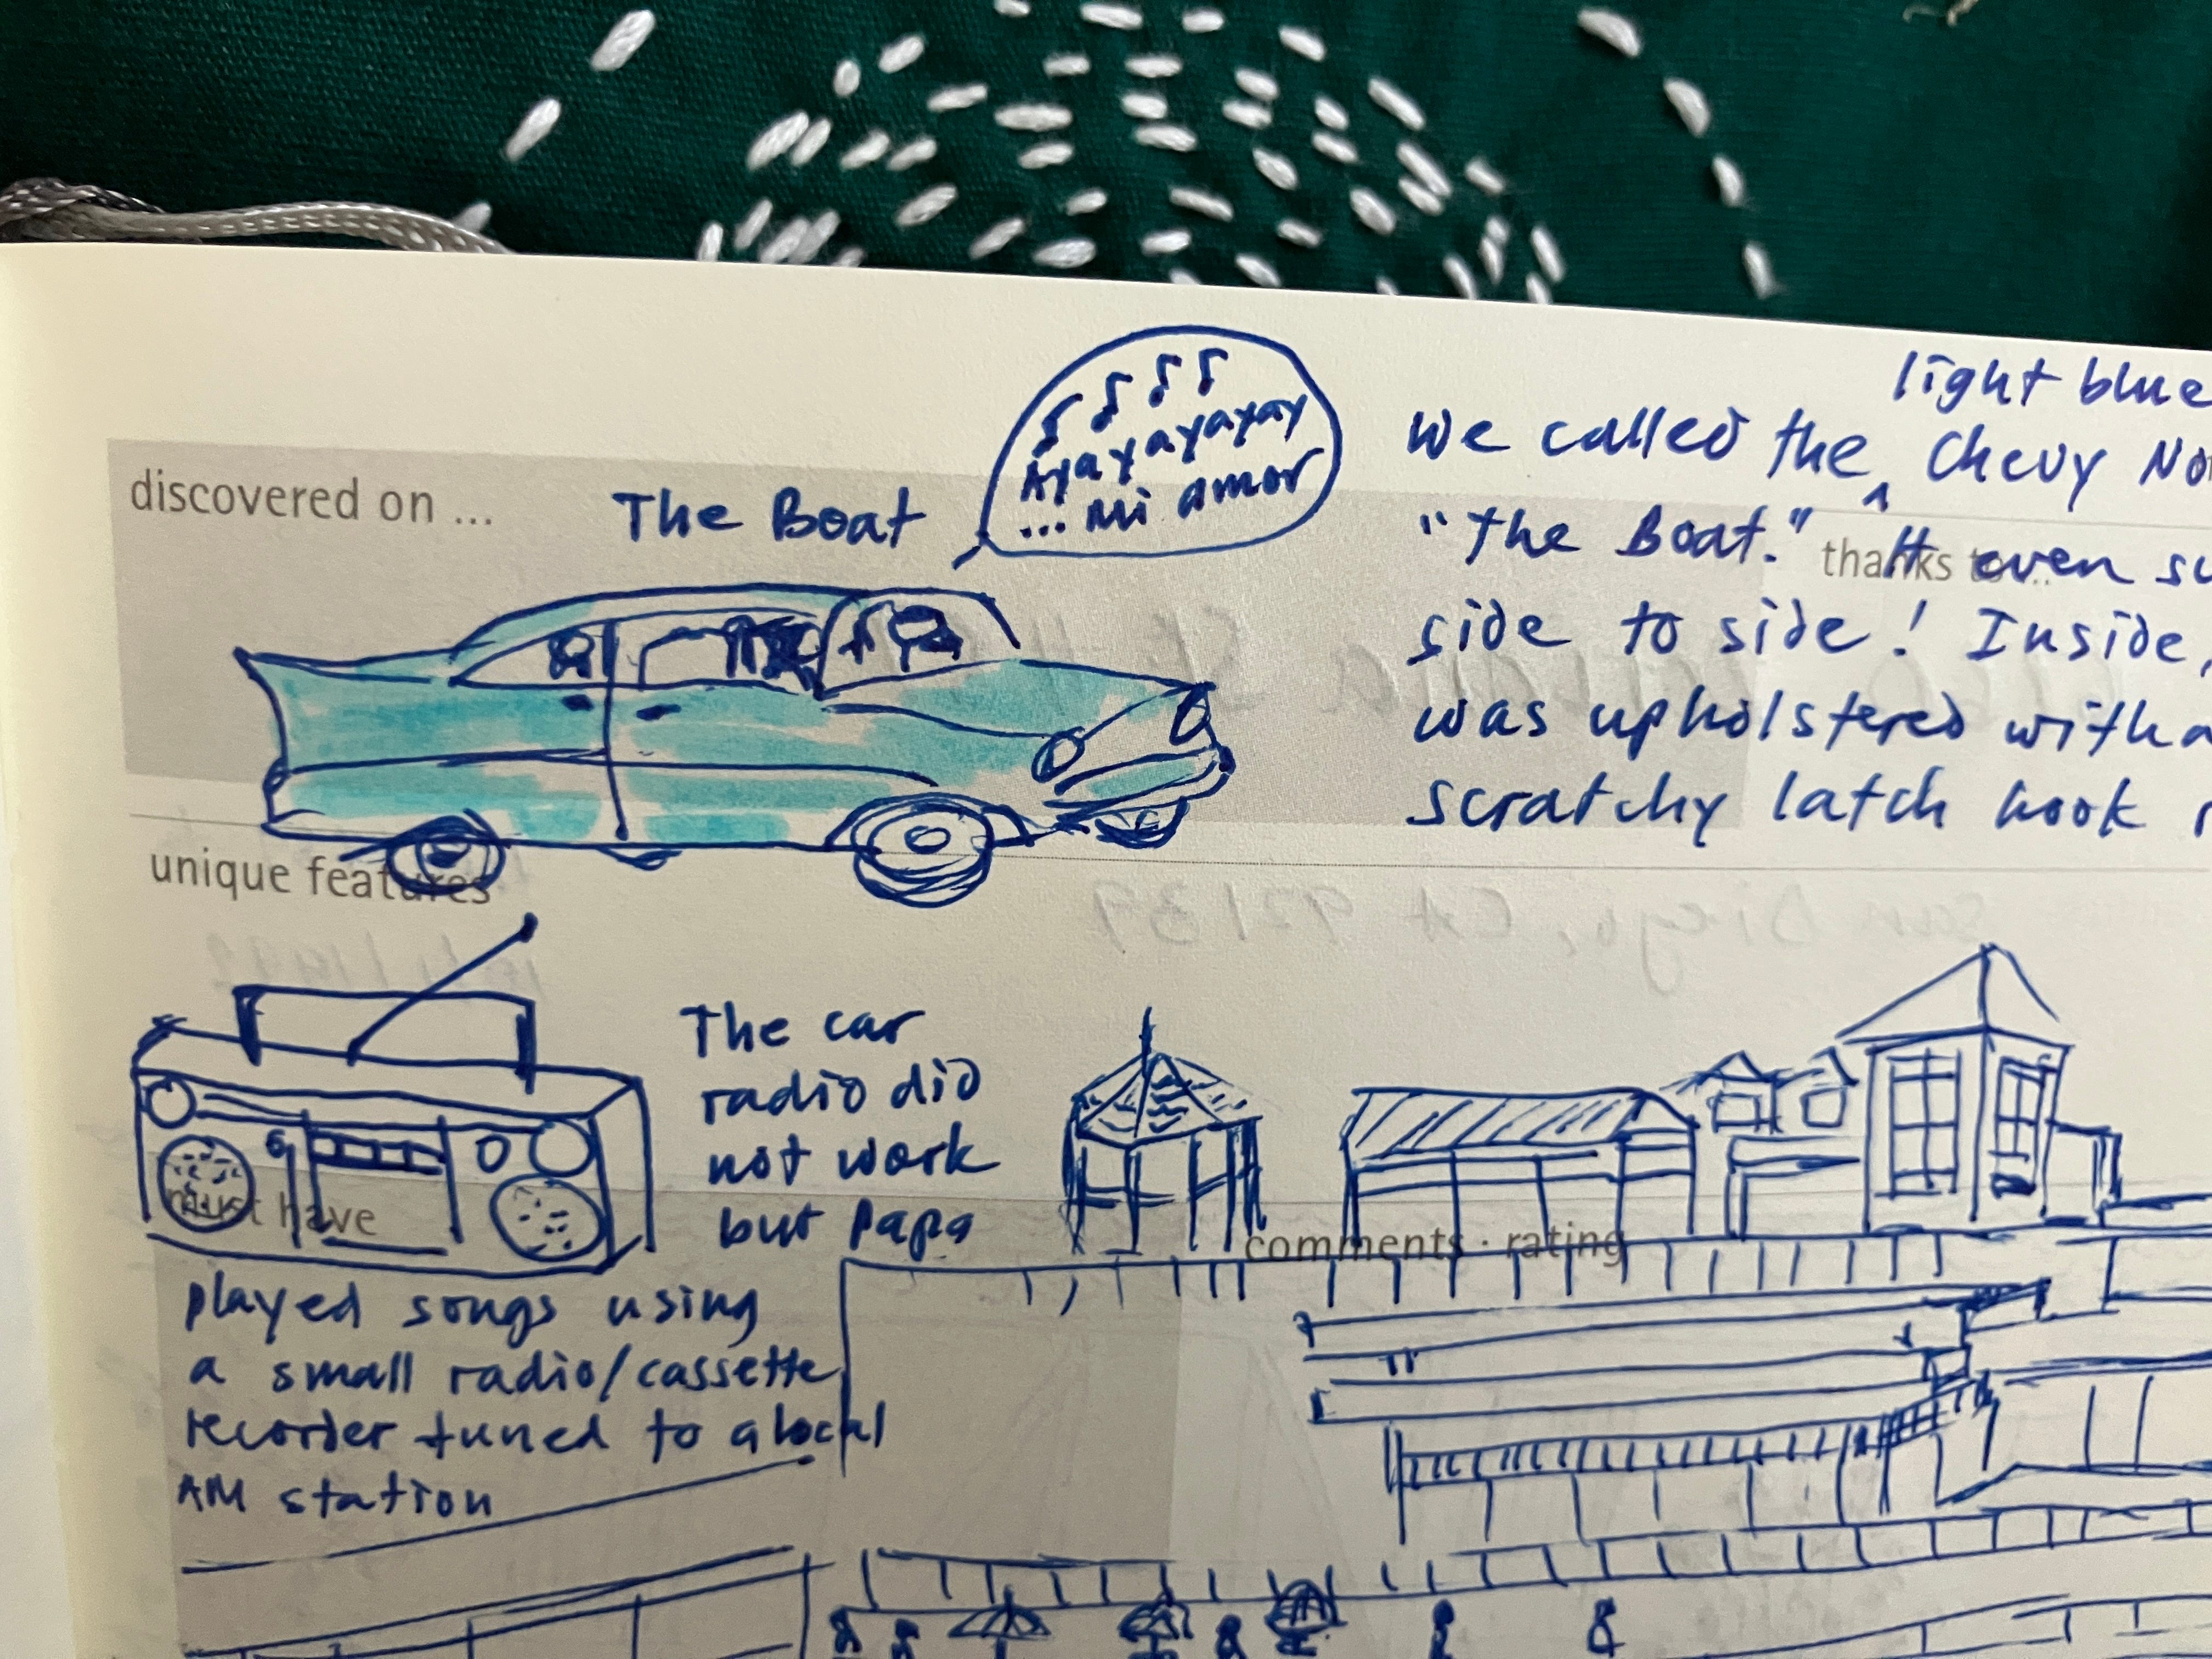 discovered on ...
The Boat
Ayayayayayay
... mi amor
light blue
We called the ^ Chevy
"The Boat." It even
thanks to ...
side to side! Inside,
was upholstered with a
scratchy latch hook
unique features
San Diego, CA 92139
The car
radio did
not work
but Papa
must have
played songs using
a small radio/cassette
recorder tuned to a local
AM station
comments · rating